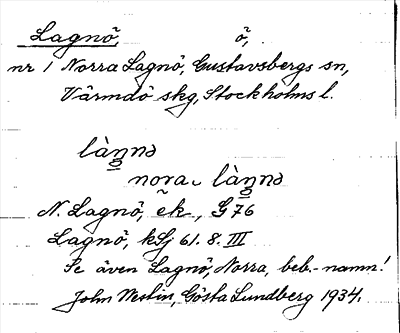 Lagnö, ö,
nr 1 Norra Lagnö, Gustavsbergs sn,
Värmdö skg, Stockholms l.
làŋnə
nora làŋnə
N. Lagnö, ek., G 76
Lagnö, kSj 61. 8. III
Se även Lagnö, Norra, beb.-namn!
John Westin, Gösta Lundberg 1934.